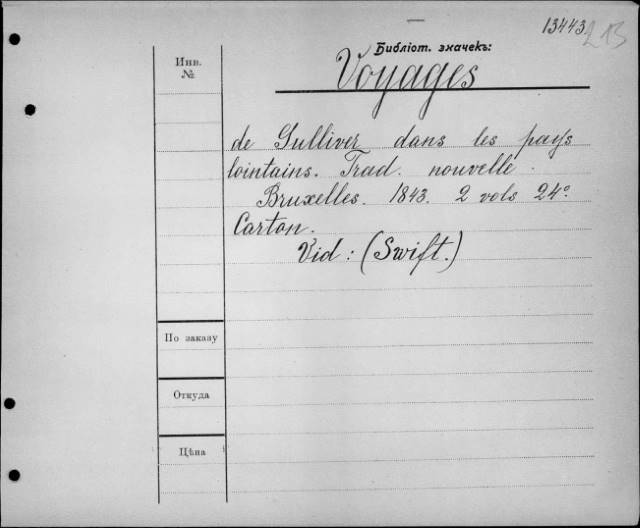 13443 213
Библіот. значекъ:
Инв.
№
Voyages
de Gulliver dans les pays
lointains. Trad. nouvelle.
Bruxelles. 1843. 2 vols 24°.
Carton.
Vid: (Swift.)
По заказу
Откуда
Цѣна